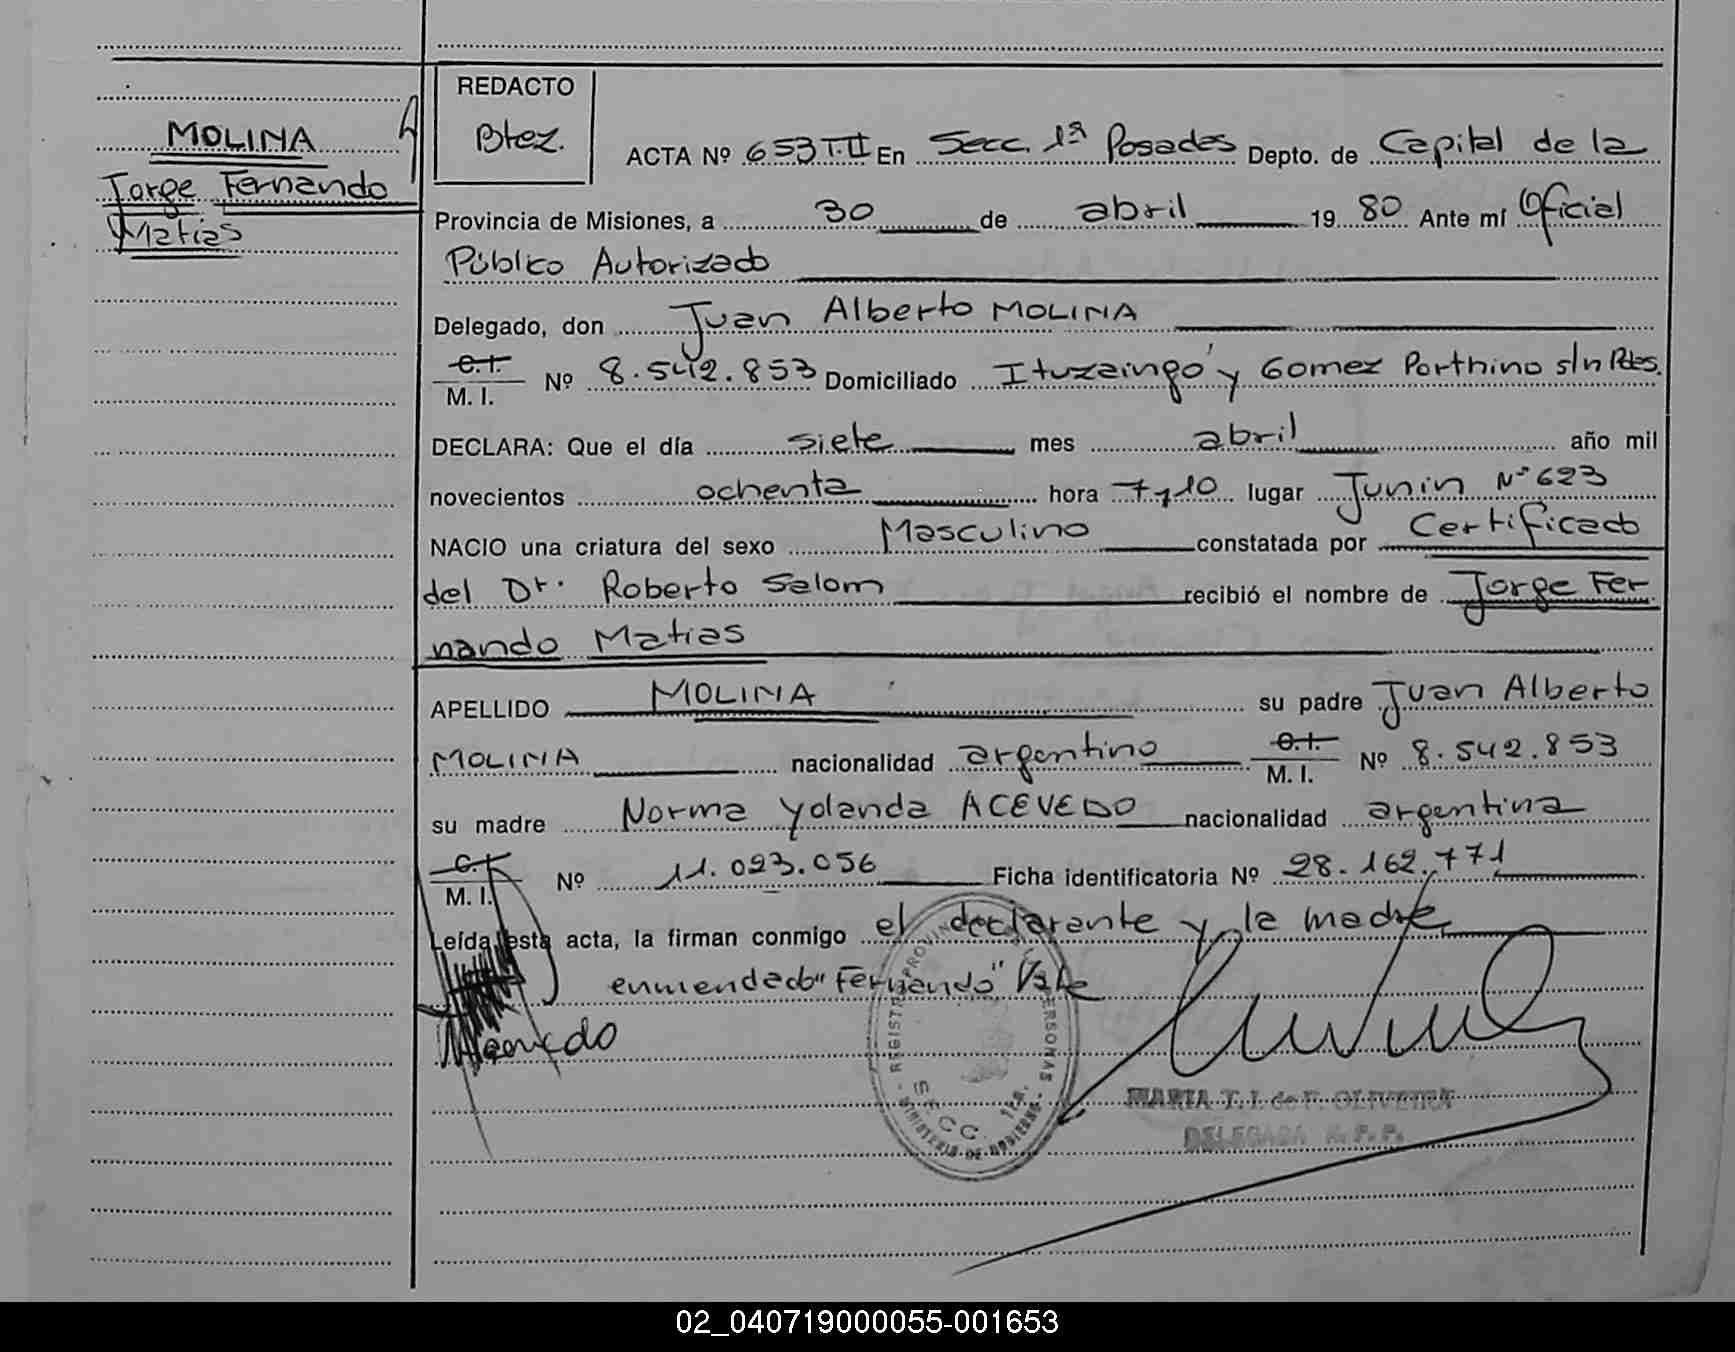 MOLINA
Jorge Fernando
Matias
REDACTO
Btez.
ACTA Nº 653 T.II En Secc. 1ª Posadas Depto. de Capital de la
Provincia de Misiones, a 30 de abril 19 80 Ante mí Oficial
Público Autorizado
Delegado, don Juan Alberto MOLINA
C.I.
M. I. Nº 8.542.853 Domiciliado Ituzaingó y Gomez Porthino s/n Pdas.
DECLARA: Que el día siete mes abril año mil
novecientos ochenta hora 7,10 lugar Junin Nº 623
NACIO una criatura del sexo Masculino constatada por Certificado
del Dr. Roberto Salom recibió el nombre de Jorge Fer
nando Matias
APELLIDO MOLINA su padre Juan Alberto
MOLINA nacionalidad argentino C.I. M. I. Nº 8.542.853
su madre Norma Yolanda ACEVEDO nacionalidad argentina
C.I.
M. I. Nº 11.023.056 Ficha identificatoria Nº 28.162.771
Leída esta acta, la firman conmigo el declarante y la madre
enmendado "Fernando" Vale
Acevedo
REGISTR PROVIN ERSONAS
SECC. 1RA.
MINISTERIO DE GOBIERNO
MARIA T. I. de F. OLIVEIRA
DELEGADA R. P. P.
02_040719000055-001653